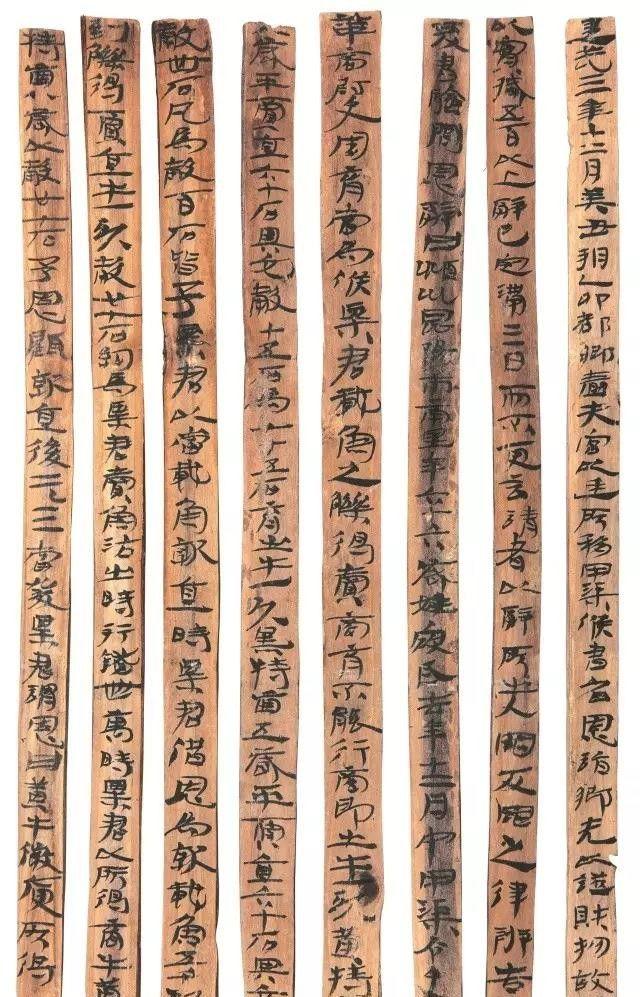 建武三年十二月癸丑朔乙卯都鄉嗇夫宮以廷所移甲渠候書召恩詣鄉先以證財物故
以實臧五百以上辭已定滿三日而不更言請者以辭所出入罪反罪之律辨告
爰書驗問恩辭曰潁川昆陽市南里年六十六歲姓寇氏去年十二月中甲渠令
華商尉史周育當為候粟君載魚之觻得賣商育不能行商即出牛一頭黃特
歲平賈直六十石與它穀十五石為七十五石育出牛一頭黑特齒五歲平賈直六十石與
穀卌石凡為穀百石皆予粟君以當載魚就直時粟君借恩為就載魚五
到觻得賈直牛一頭穀廿七石約為粟君賣魚沽出時行錢卌萬時粟君以所得商牛黃
特齒八歲以穀廿七石予恩顧就直後二三當發粟君謂恩曰黃牛微庾所得